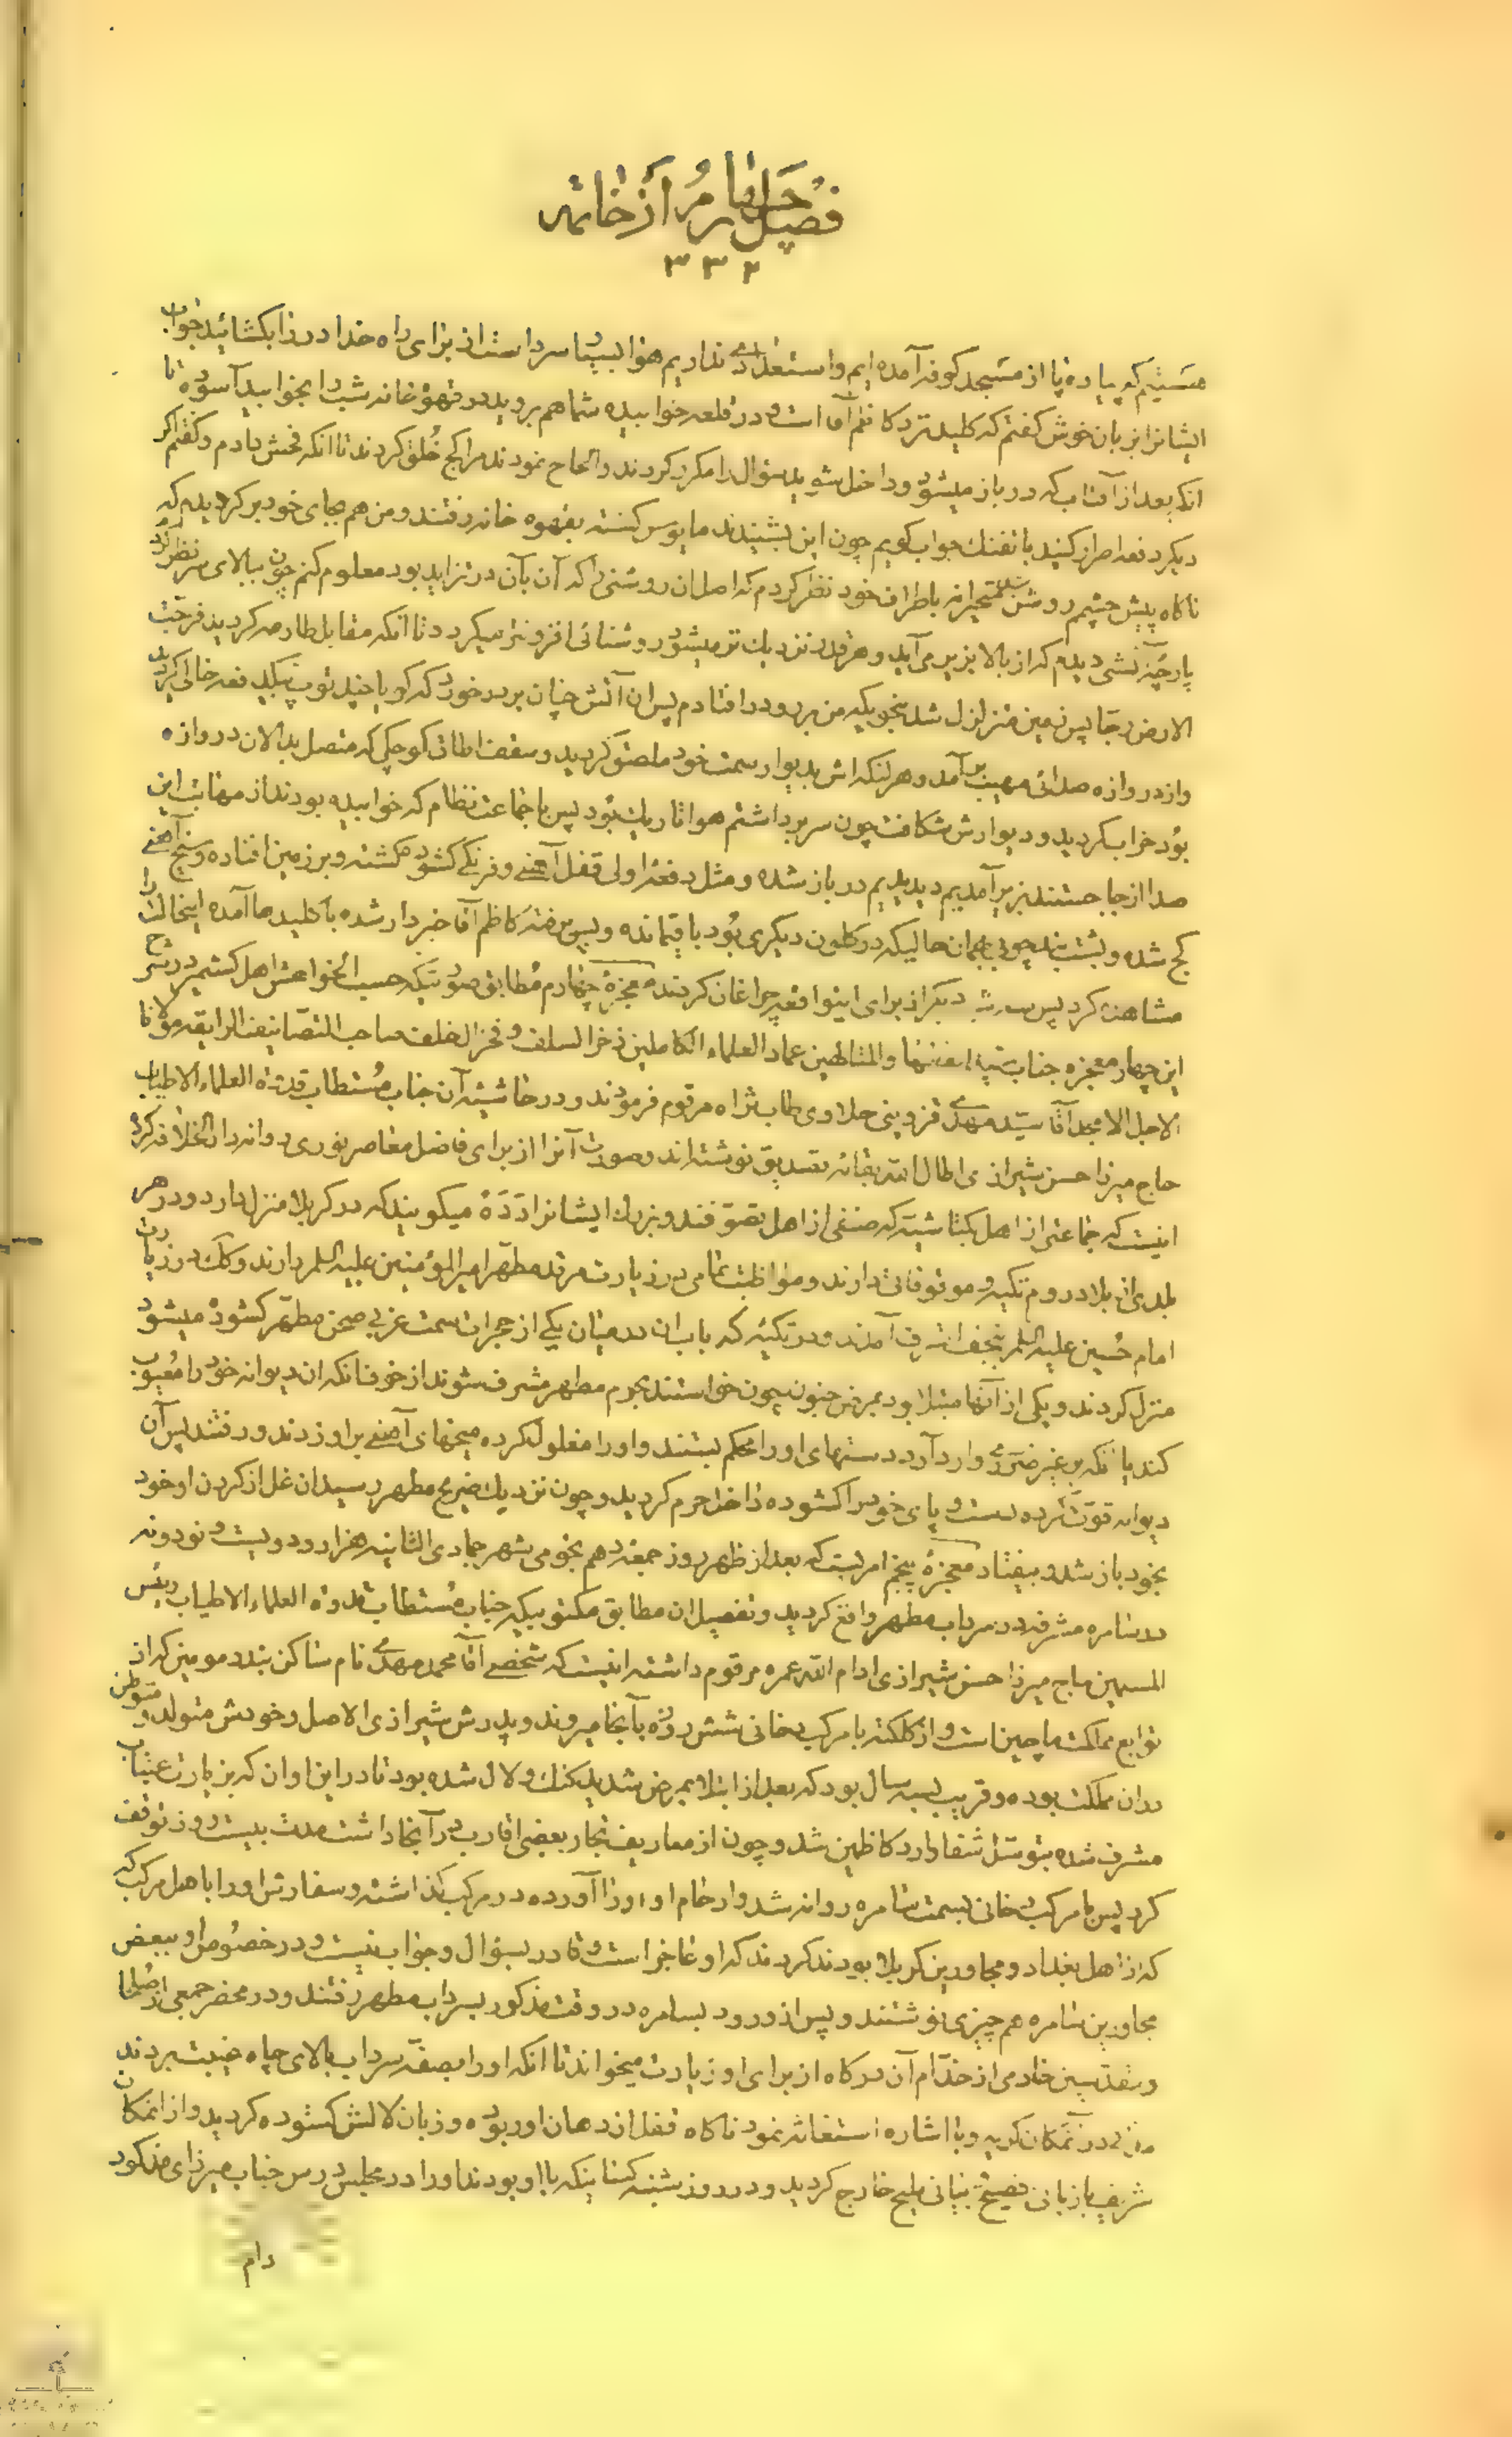 فصل چهارم از خاتمه
۳۳۲
هستیم که پیاده پا از مسجد کوفه آمده ایم و استعدادی نداریم هوا بسیار سرد است از برای راه خدا در را بکشائید جواب
ایشانرا بزبان خوش کفتم که کلید نزد کاظم آقا است و در قلعه خوابیده شما هم بروید در قهوه خانه شب را بخوابید آسوده تا
انکه بعد از آفتاب که در باز میشود و داخل شوید سؤال را مکرر کردند و الحاح نمودند مرا کج خُلق کردند تا انکه فحش دادم و کفتم اکر
دیکر دفعه اصرار کنید با تفنک جواب کویم چون این بشنیدند مایوس کشته بقهوه خانه رفتند و من هم بجای خود برکردیدم که
ناکاه پیش چشمم روشن شد متحیرانه باطراف خود نظر کردم که اصل ان روشنی را که آن بآن در تزاید بود معلوم کنم چون ببالای سر نظر کردم
پارچۀ آتشی دیدم که از بالا بزیر می آید و هر قدر نزدیک تر میشود روشنائی افزونتر میکردد تا انکه مقابل طارمه کردید فرجّت
الارض رجّا پس زمین متزلزل شد بنحویکه من برو در افتادم پس ان آتش چنان بر در خورد که کویا چند توپ بیکدفعه خالی کردید
و از دروازه صدائی مهیب بر آمد و هر لنکه اش بدیوار سمت خود ملصق کردید و سقف اطاق کوچکی که متصل بدالان دروازه
بود خراب کردید و دیوارش شکافت چون سر برداشتم هوا تاریک بود پس با جماعت نظام که خوابیده بودند از مهابت این
صدا از جا جستند بزیر آمدیم دیدیم در باز شده و مثل دفعه اولی قفل آهنی و فرنکی کشوده کشته و بر زمین افتاده و سیخ آهنی
کج شده و پشت بند چوبی بهمان حالیکه در کلون دیکری بود باقیمانده و پس رفته کاظم آقا خبردار شده با کلیدها آمده اینحالت را
مشاهده کرد پس سه شب دیکر از برای اینواقعه چراغان کردند معجزۀ چهارم مُطابق صورتیکه حسب الخواهش اهل کشمیر در شرح
این چهار معجزه جناب سید الفقهاء و المتاطهین عماد العلماء الکاملین ذخر السلف و فخر الخلف صاحب التصانیف الرایقه مولانا
الاجل الامجد آقا سیّد مهدی قزوینی حلاوی طاب ثراه مرقوم فرمودند و در حاشیه آن جناب مُستطاب قدوة العلماء الاطیاب
حاج میرزا حسن شیرازی اطال الله بقائه تصدیق نوشته اند و صورت آنرا از برای فاضل معاصر نوری روانه دار الخلافه کرده
اینست که جماعتی از اهل بکتاشیّه که صنفی از اهل تصوّفند و بزرک ایشانرا دَدَه میکویند که در کربلا منزل دارد و در هر
بلدی از بلاد روم تکیه و موقوفاتی دارند و مواظبت تمامی در زیارت مرقد مطهّر امیر المؤمنین علیه السلم دارند و کذلک در زیارت
امام حُسین علیه السلم بنجف اشرف آمدند و در تکیه که باب ان در میان یکی از حجرات سمت غربی صحن مطهّر کشوده میشود
منزل کردند و یکی از آنها مبتلا بود بمرض جنون چون خواستند بحرم مطهر مشرف شوند از خوف انکه ان دیوانه خود را معیوب
کند یا انکه بر غیر ضرری وارد آورد دستهای او را محکم بستند و او را مغلول کرده میخهای آهنی بر او زدند و رفتند پس آن
دیوانه قوّت کرده دست و پای خود را کشوده داخل حرم کردید و چون نزدیک ضریح مطهر رسید ان غل از کردن او خود
بخود باز شد و بیفتاد معجزۀ پنجم امریست که بعد از ظهر روز جمعه دهم نجومی شهر جمادی الثانیه هزار و دویست و نود و نه
در سامره مشرفه در سرداب مطهر واقع کردید و تفصیل ان مطابق مکتوبیکه جناب مُستطاب قدوة العلماء الاطیاب رئیس
المسلمین حاج میرزا حسن شیرازی ادام الله عمره مرقوم داشته اینست که شخصی آقا محمد مهدی نام ساکن بندر مومین که از
توابع مملکت ماچین است و از کلکته با مرکب دخانی شش روزه بآنجا میروند و پدرش شیرازی الاصل و خودش متولد و متوطن
در ان مملکت بوده و قریب بسه سال بود که بعد از ابتلاء بمرض شدید کنک و لال شده بود تا در این اوان که بزیارت عتبات
مشرف شده بتوسّل شفا وارد کاظمین شد و چون از معاریف تجار بعضی اقارب در آنجا داشت مدت بیست روز توقف
کرد پس با مرکب دخانی بسمت سامره روانه شد و ارحام او او را آورده در مرکب کذاشته و سفارش او را با اهل مرکب که
که از اهل بغداد و مجاورین کربلا بودند کردند که او عاجز است و قادر بسؤال و جواب نیست و در خصوص او ببعض
مجاورین سامره هم چیزی نوشتند و پس از ورود بسامره در وقت مذکور بسرداب مطهر رفتند و در محضر جمعی از صلحا
و مقدسین خادمی از خدّام آن درکاه از برای او زیارت میخواند تا انکه او را بصفّه سرداب بالای چاه غیبت بردند
در آنمکان کریه و با اشاره استغاثه نمود ناکاه قفل از دهان او ربوده و زبان لالش کشوده کردید و از انمکان
شریف با زبان فصیح و بیانی ملیح خارج کردید و در روز شنبه کسانیکه با او بودند او را در مجلس درس جناب میرزای مذکور
دام